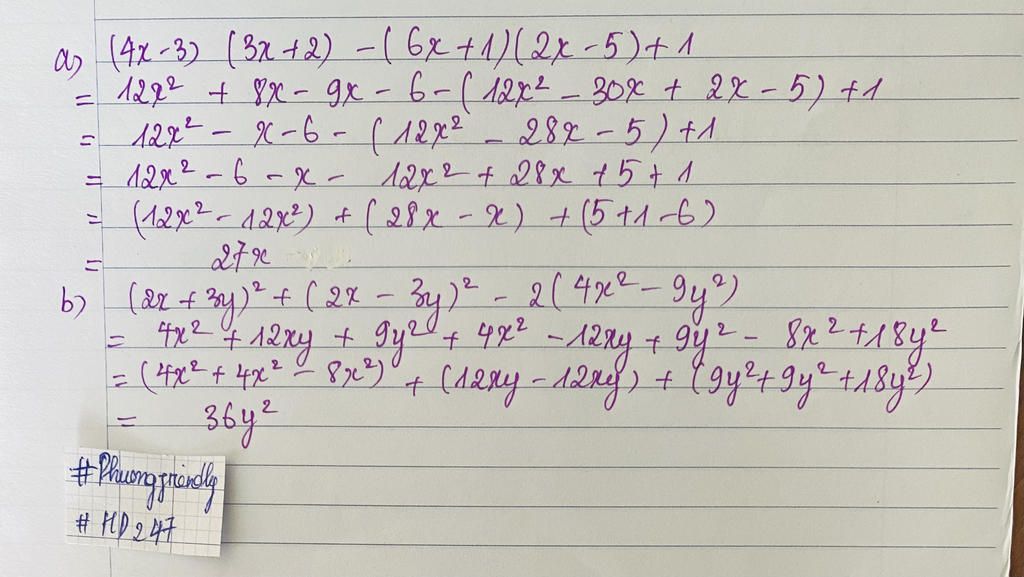 a) (4x-3) (3x+2) - (6x+1)(2x-5)+1
= 12x² + 8x - 9x - 6 - (12x² - 30x + 2x - 5) +1
= 12x² - x - 6 - (12x² - 28x - 5) +1
= 12x² - 6 - x - 12x² + 28x + 5 + 1
= (12x² - 12x²) + (28x - x) + (5+1-6)
= 27x
b) (2x+3y)² + (2x - 3y)² - 2(4x² - 9y²)
= 4x² + 12xy + 9y² + 4x² - 12xy + 9y² - 8x² + 18y²
= (4x² + 4x² - 8x²) + (12xy - 12xy) + (9y² + 9y² + 18y²)
= 36y²
#Phuongfriendly
#HD247